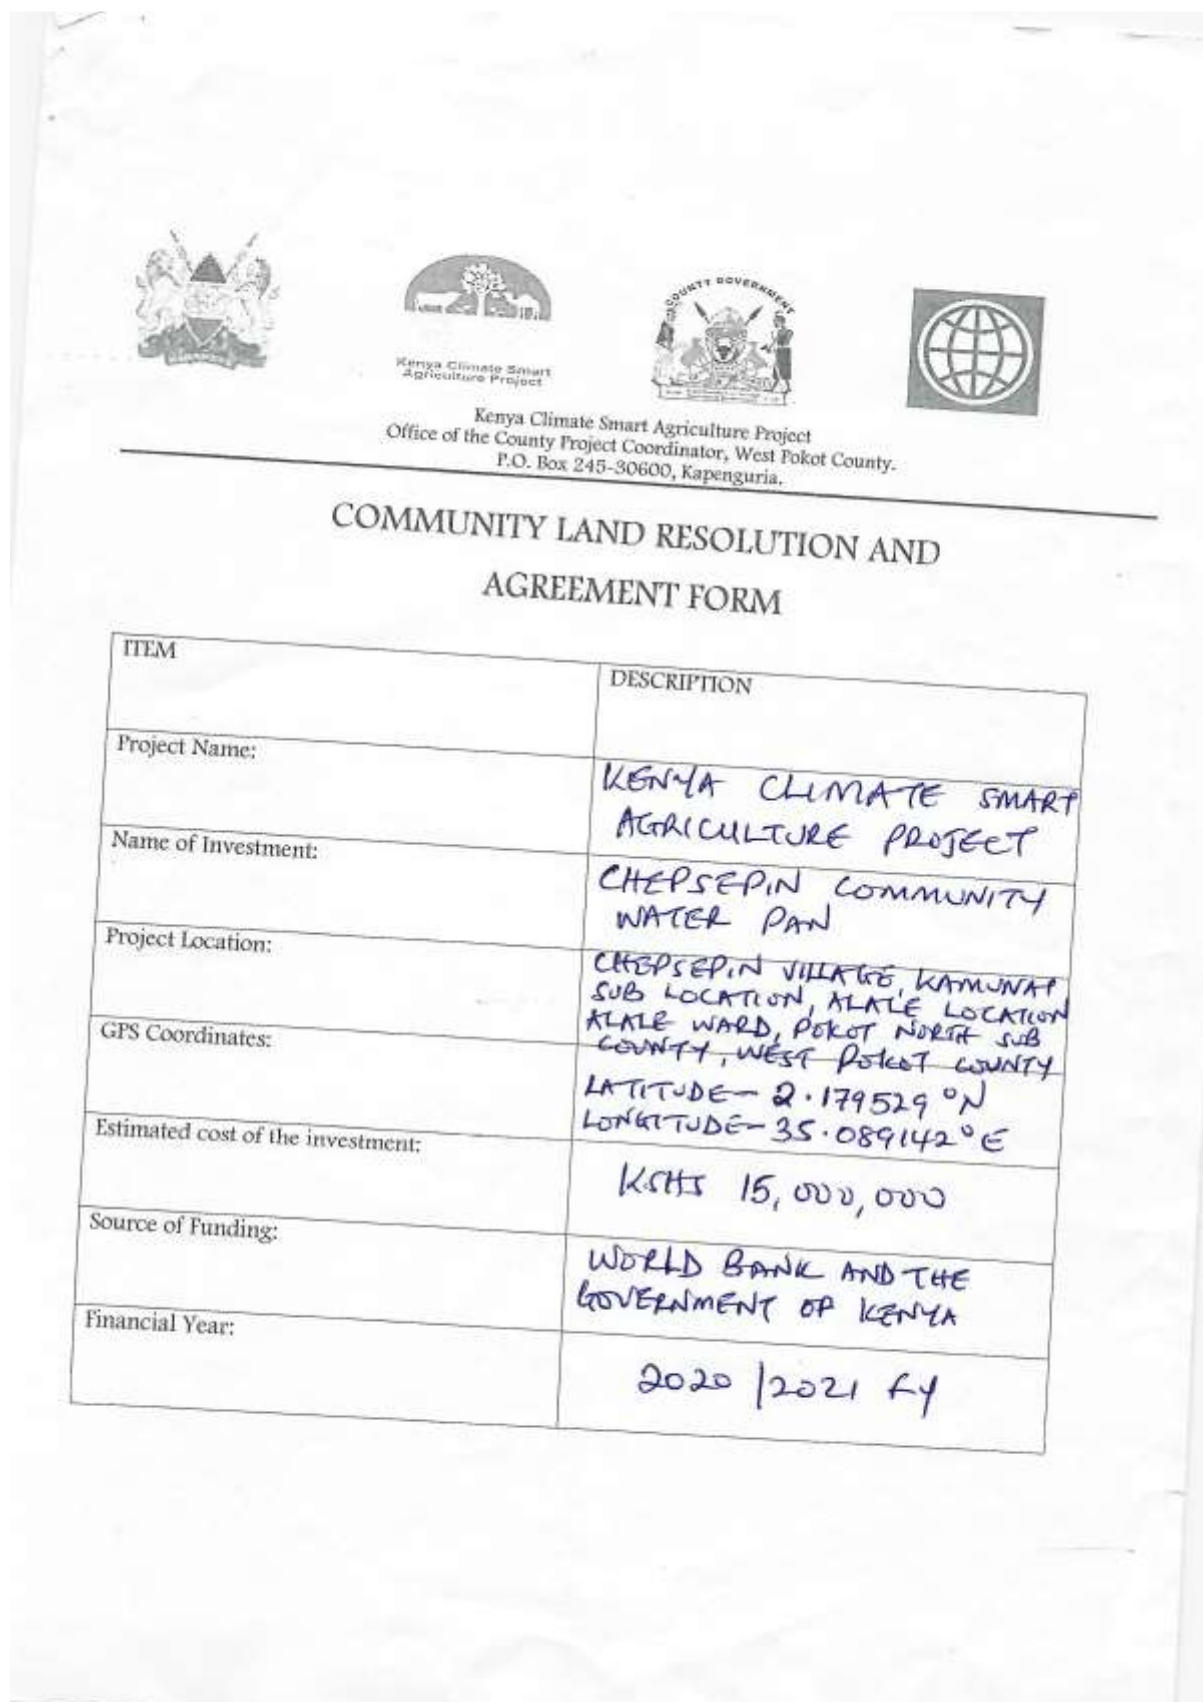 Kenya Climate Smart
Agriculture Project
COUNTY GOVERNMENT
Kenya Climate Smart Agriculture Project
Office of the County Project Coordinator, West Pokot County.
P.O. Box 245-30600, Kapenguria.
COMMUNITY LAND RESOLUTION AND
AGREEMENT FORM
ITEM
DESCRIPTION
Project Name:
KENYA CLIMATE SMART
AGRICULTURE PROJECT
Name of Investment:
CHEPSEPIN COMMUNITY
WATER PAN
Project Location:
CHEPSEPIN VILLAGE, KAMUNAI
SUB LOCATION, ALALE LOCATION
ALALE WARD, POKOT NORTH SUB
COUNTY, WEST POKOT COUNTY
GPS Coordinates:
LATITUDE- 2.179529 °N
LONGITUDE- 35.089142° E
Estimated cost of the investment:
KSHS 15,000,000
Source of Funding:
WORLD BANK AND THE
GOVERNMENT OF KENYA
Financial Year:
2020 /2021 FY